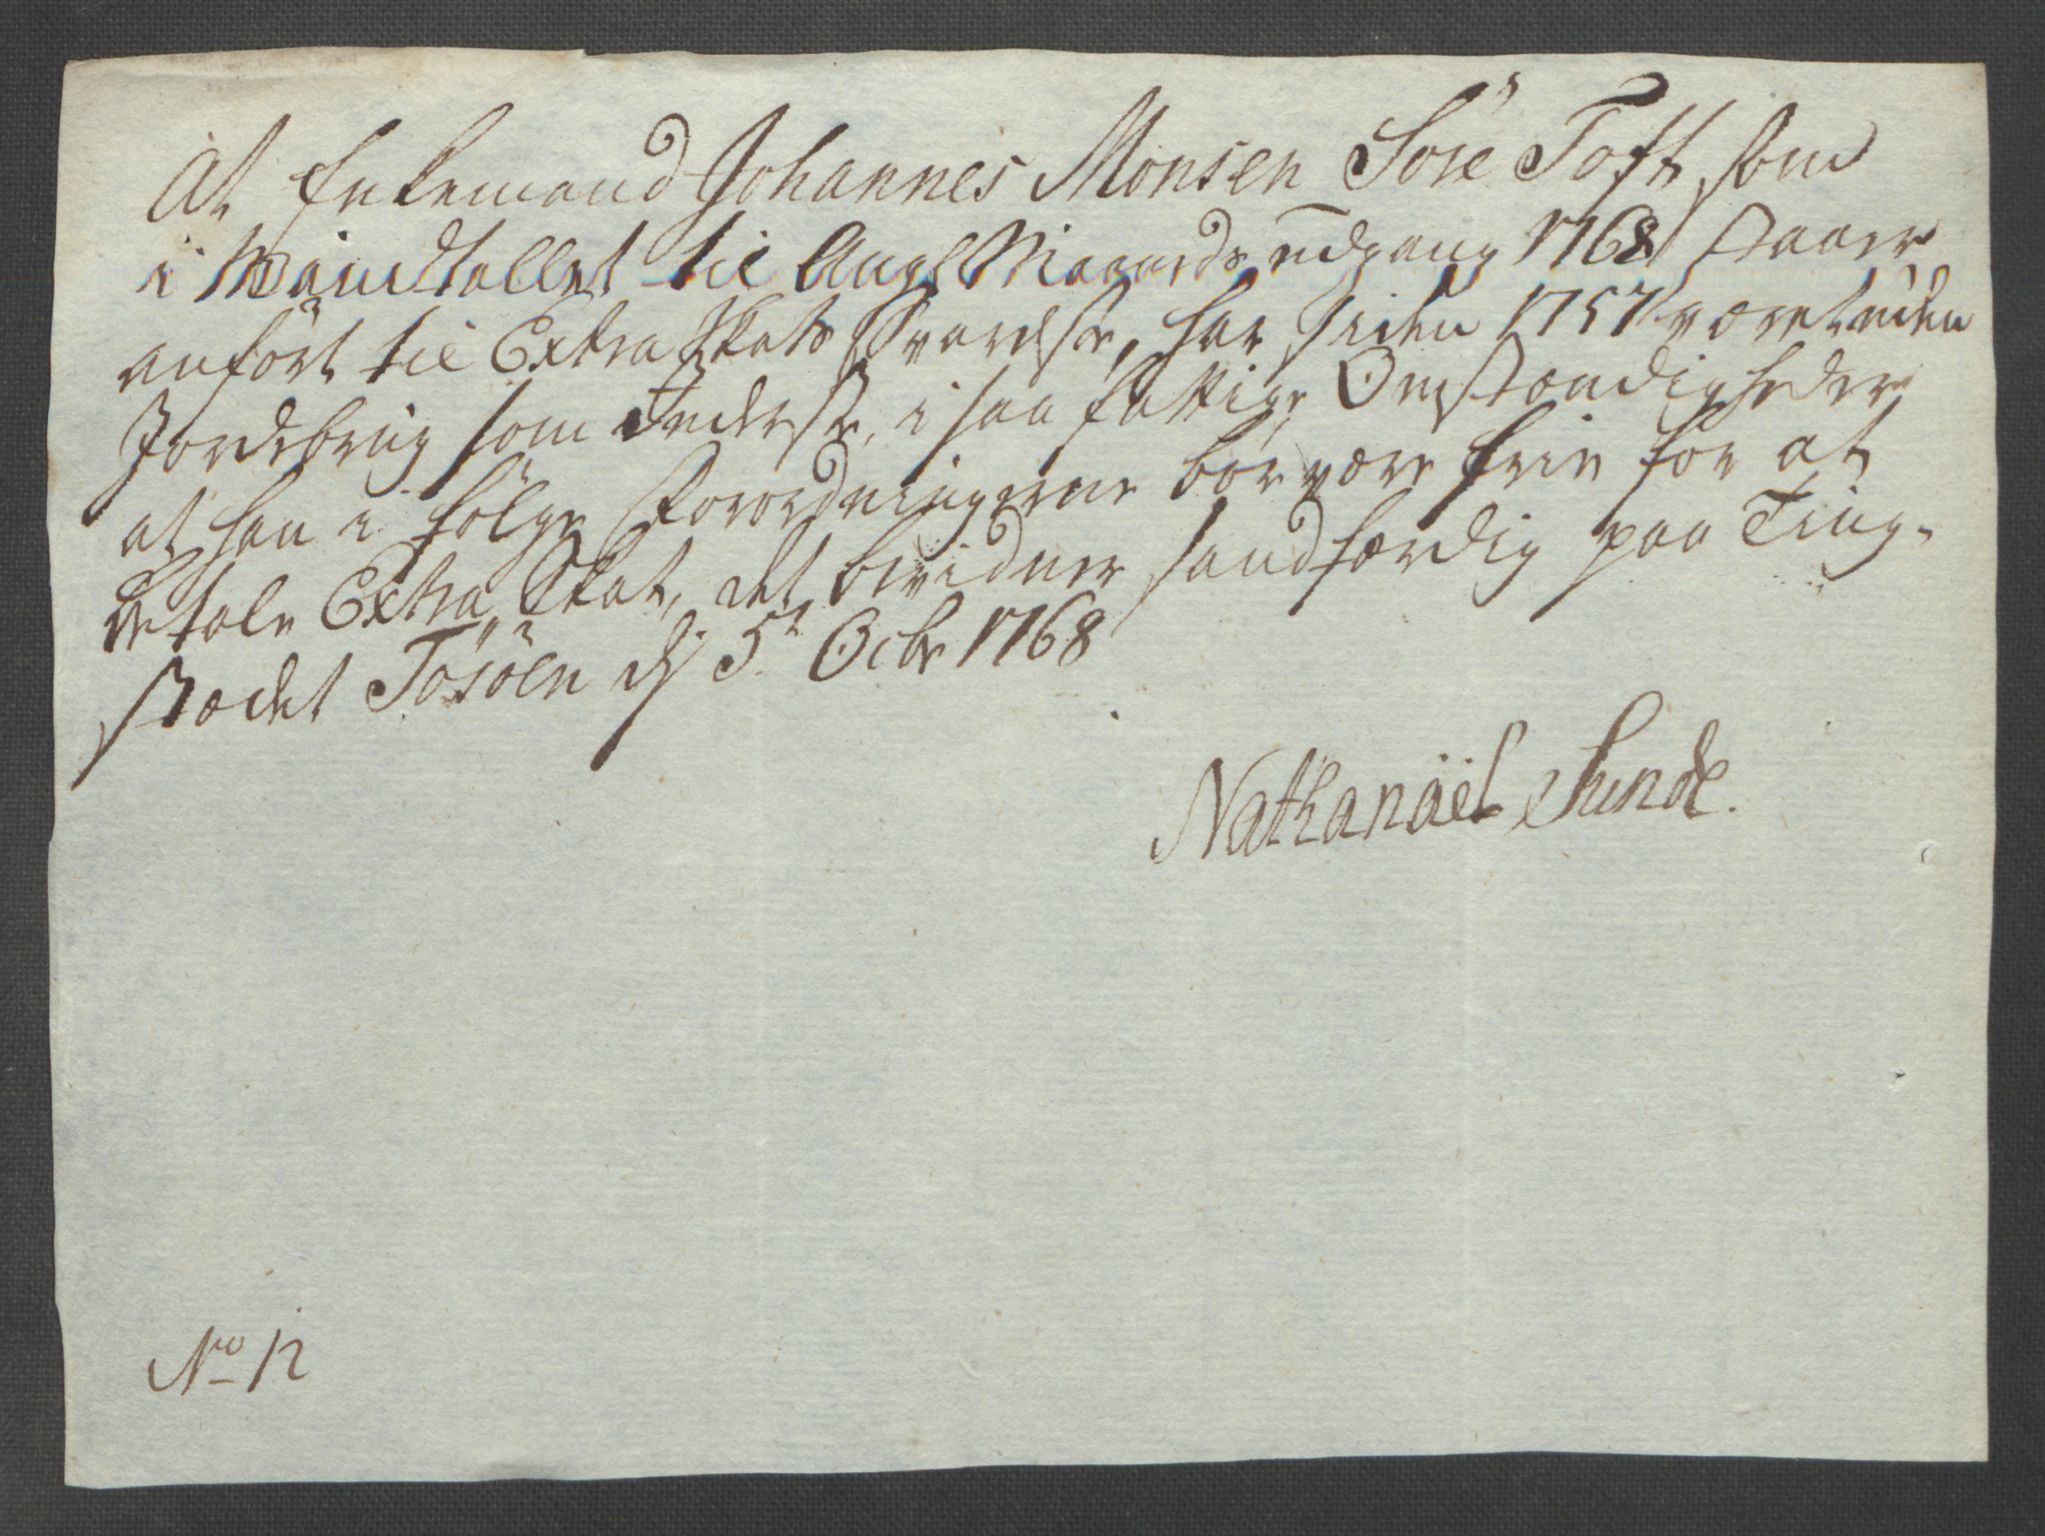 At Enkemand Johannes Monsen Søre Toft som
i Mandtallet til Aug. Maaneds udgang 1768 staaer
anført til Extra Skats Svarelse, har siden 1757 været uden
Jordebrug som Inderste, i saa fattige Omstændigheder
at han i følge Forordningerne bør være frie for at
betale Extra Skat, det bevidner sandfærdig paa Ting-
stædet Tøsøen d 5t Octbr 1768
Nathanäel Sunde.
No 12